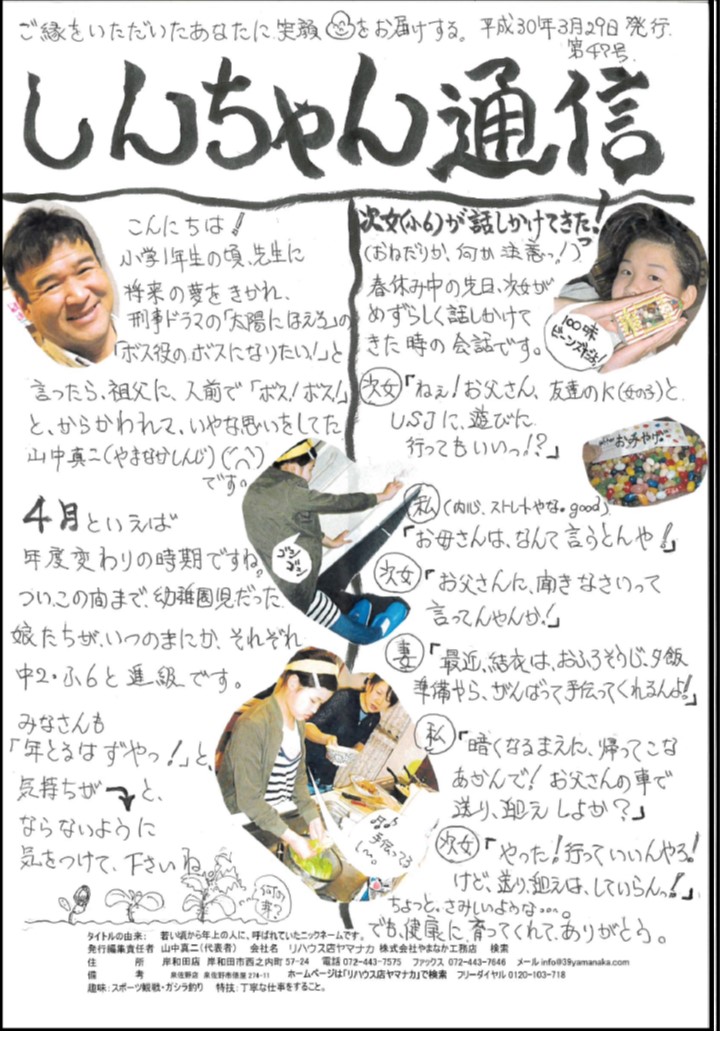 ご縁をいただいたあなたに笑顔をお届けする。平成30年3月29日発行
第47号
しんちゃん通信
こんにちは!
小学1年生の頃、先生に
将来の夢をきかれ、
刑事ドラマの「太陽にほえろ」の
「ボス役のボスになりたい!」と
言ったら、祖父に、人前で「ボス!ボス!」
と、からかわれて、いやな思いをしてた
山中真二(やまなかしんじ)(^^)
です。
4月といえば
年度変わりの時期ですね。
つい、この間まで、幼稚園児だった
娘たちが、いつのまにか、それぞれ
中2・小6と進級です。
みなさんも
「年とるはずやっ!」と、
気持ちが↷と、
ならないように
気をつけて、下さいね
次女(小6)が話しかけてきたっ!
(おねだりか、何か注意っ!)
春休み中の先日、次女が
めずらしく話しかけて
きた時の会話です。
100味
ビーンズ
おみやげ
次女「ねぇ!お父さん、友達のK(女の子)と、
USJに、遊びに
行ってもいいっ!?」
私(内心、ストレートやな。good)
「お母さんは、なんて言うとんや!」
次女「お父さんに、聞きなさいって
言ってんやんか!」
ゴシ
ゴシ
妻「最近、結衣は、おふろそうじ、夕飯
準備やら、がんばって手伝ってくれるんよ!」
私「暗くなるまえに、帰ってこな
あかんで!お父さんの車で
送り、迎えしよか?」
手伝ってる
次女「やった!行っていいんやろ!
けど、送り迎えは、していらん!」
ちょっと、さみしいような…。
でも、健康に育ってくれて、ありがとう。
何の
芽?
タイトルの由来: 若い頃から年上の人に、呼ばれていたニックネームです。
発行編集責任者 山中真二(代表者) 会社名 リハウス店ヤマナカ 株式会社やまなか工務店 検索
住 所 岸和田店 岸和田市西之内町57-24 電話 072-443-7575 ファックス 072-443-7646 メール info@39yamanaka.com
備 考 泉佐野店 泉佐野市俵屋274-11 ホームページは「リハウス店ヤマナカ」で検索 フリーダイヤル 0120-103-718
趣味:スポーツ観戦・ガシラ釣り 特技:丁寧な仕事をすること。